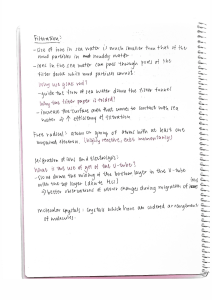 Filtration:
- size of ions in sea water is much smaller than that of the
mud particles in muddy water
- ions in the sea water can pass through pores of the
filter while mud particles cannot
Why we glue rod?
- guide the flow of sea water down the filter funnel
Why the filter paper is folded?
- increase the surface area that comes to contact with sea
water → ↑ efficiency of filtration
Free radical: atom or group of atoms with at least one
unpaired electron. (highly reactive, exist momentarily)
Migration of ions and electrolysis:
What is the use of gel in the U-tube?
- slows down the mixing of the bottom layer in the U-tube
with the top layer (dilute HCl)
→ better observations of colour changes during migration of ions
molecular crystal: crystals which have an ordered arrangement
of molecules